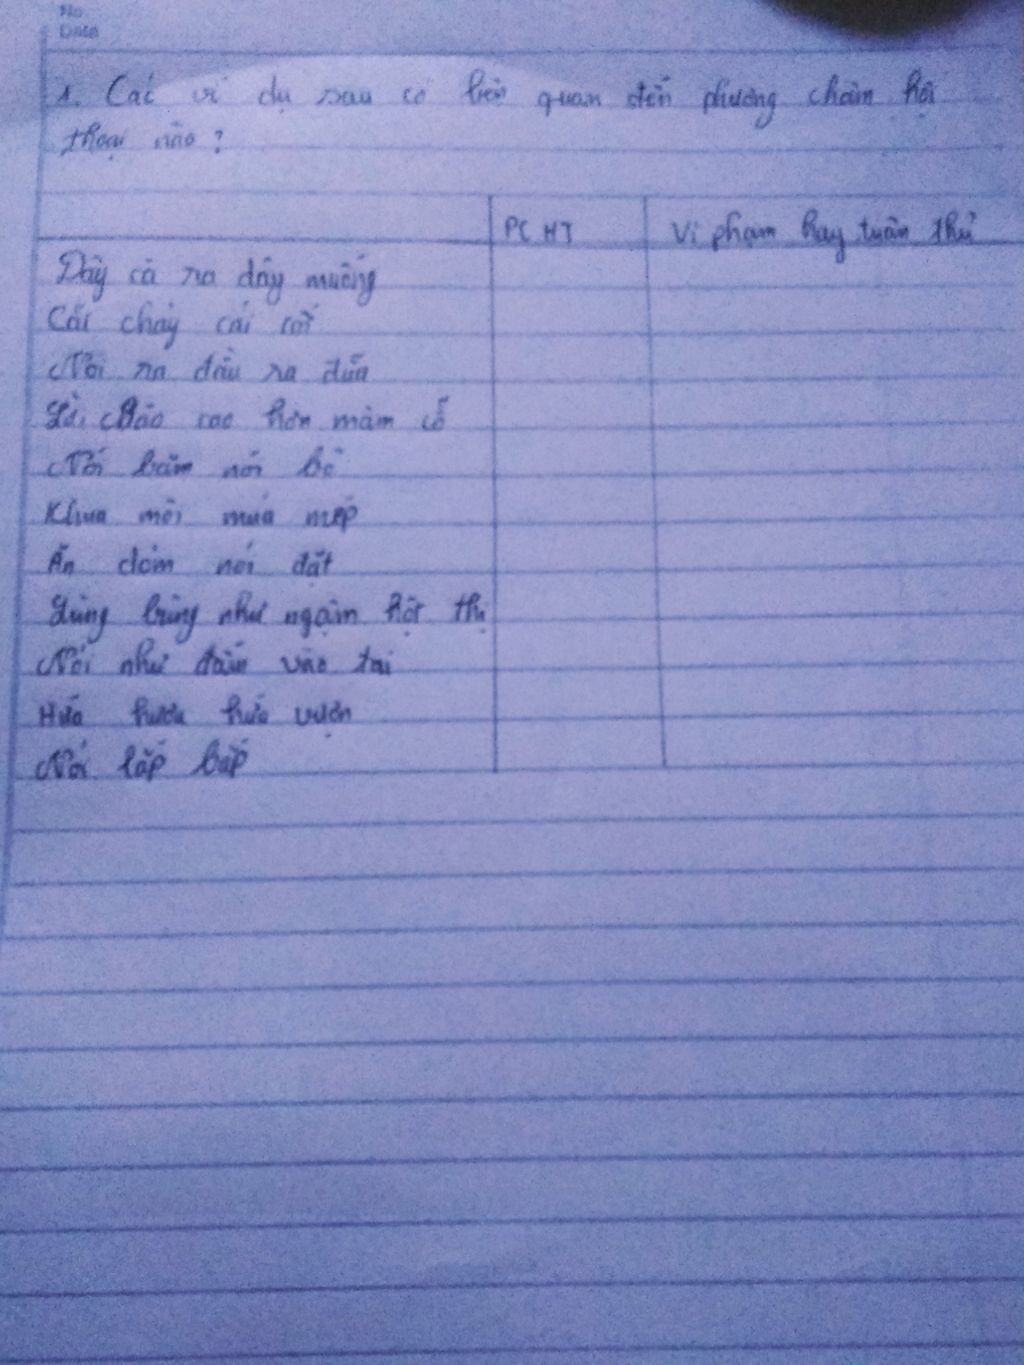 No
Date
1. Các ví dụ sau có liên quan đến phương châm hội
thoại nào ?
PC HT
Vi phạm hay tuân thủ
Dây cà ra dây muống
Cãi chày cãi cối
Nói ra đầu ra đũa
Lời chào cao hơn mâm cỗ
Nói băm nói bổ
Khua môi múa mép
Ăn đơm nói đặt
Lúng búng như ngậm hột thị
Nói như đấm vào tai
Hứa hươu hứa vượn
Nói lắp bắp